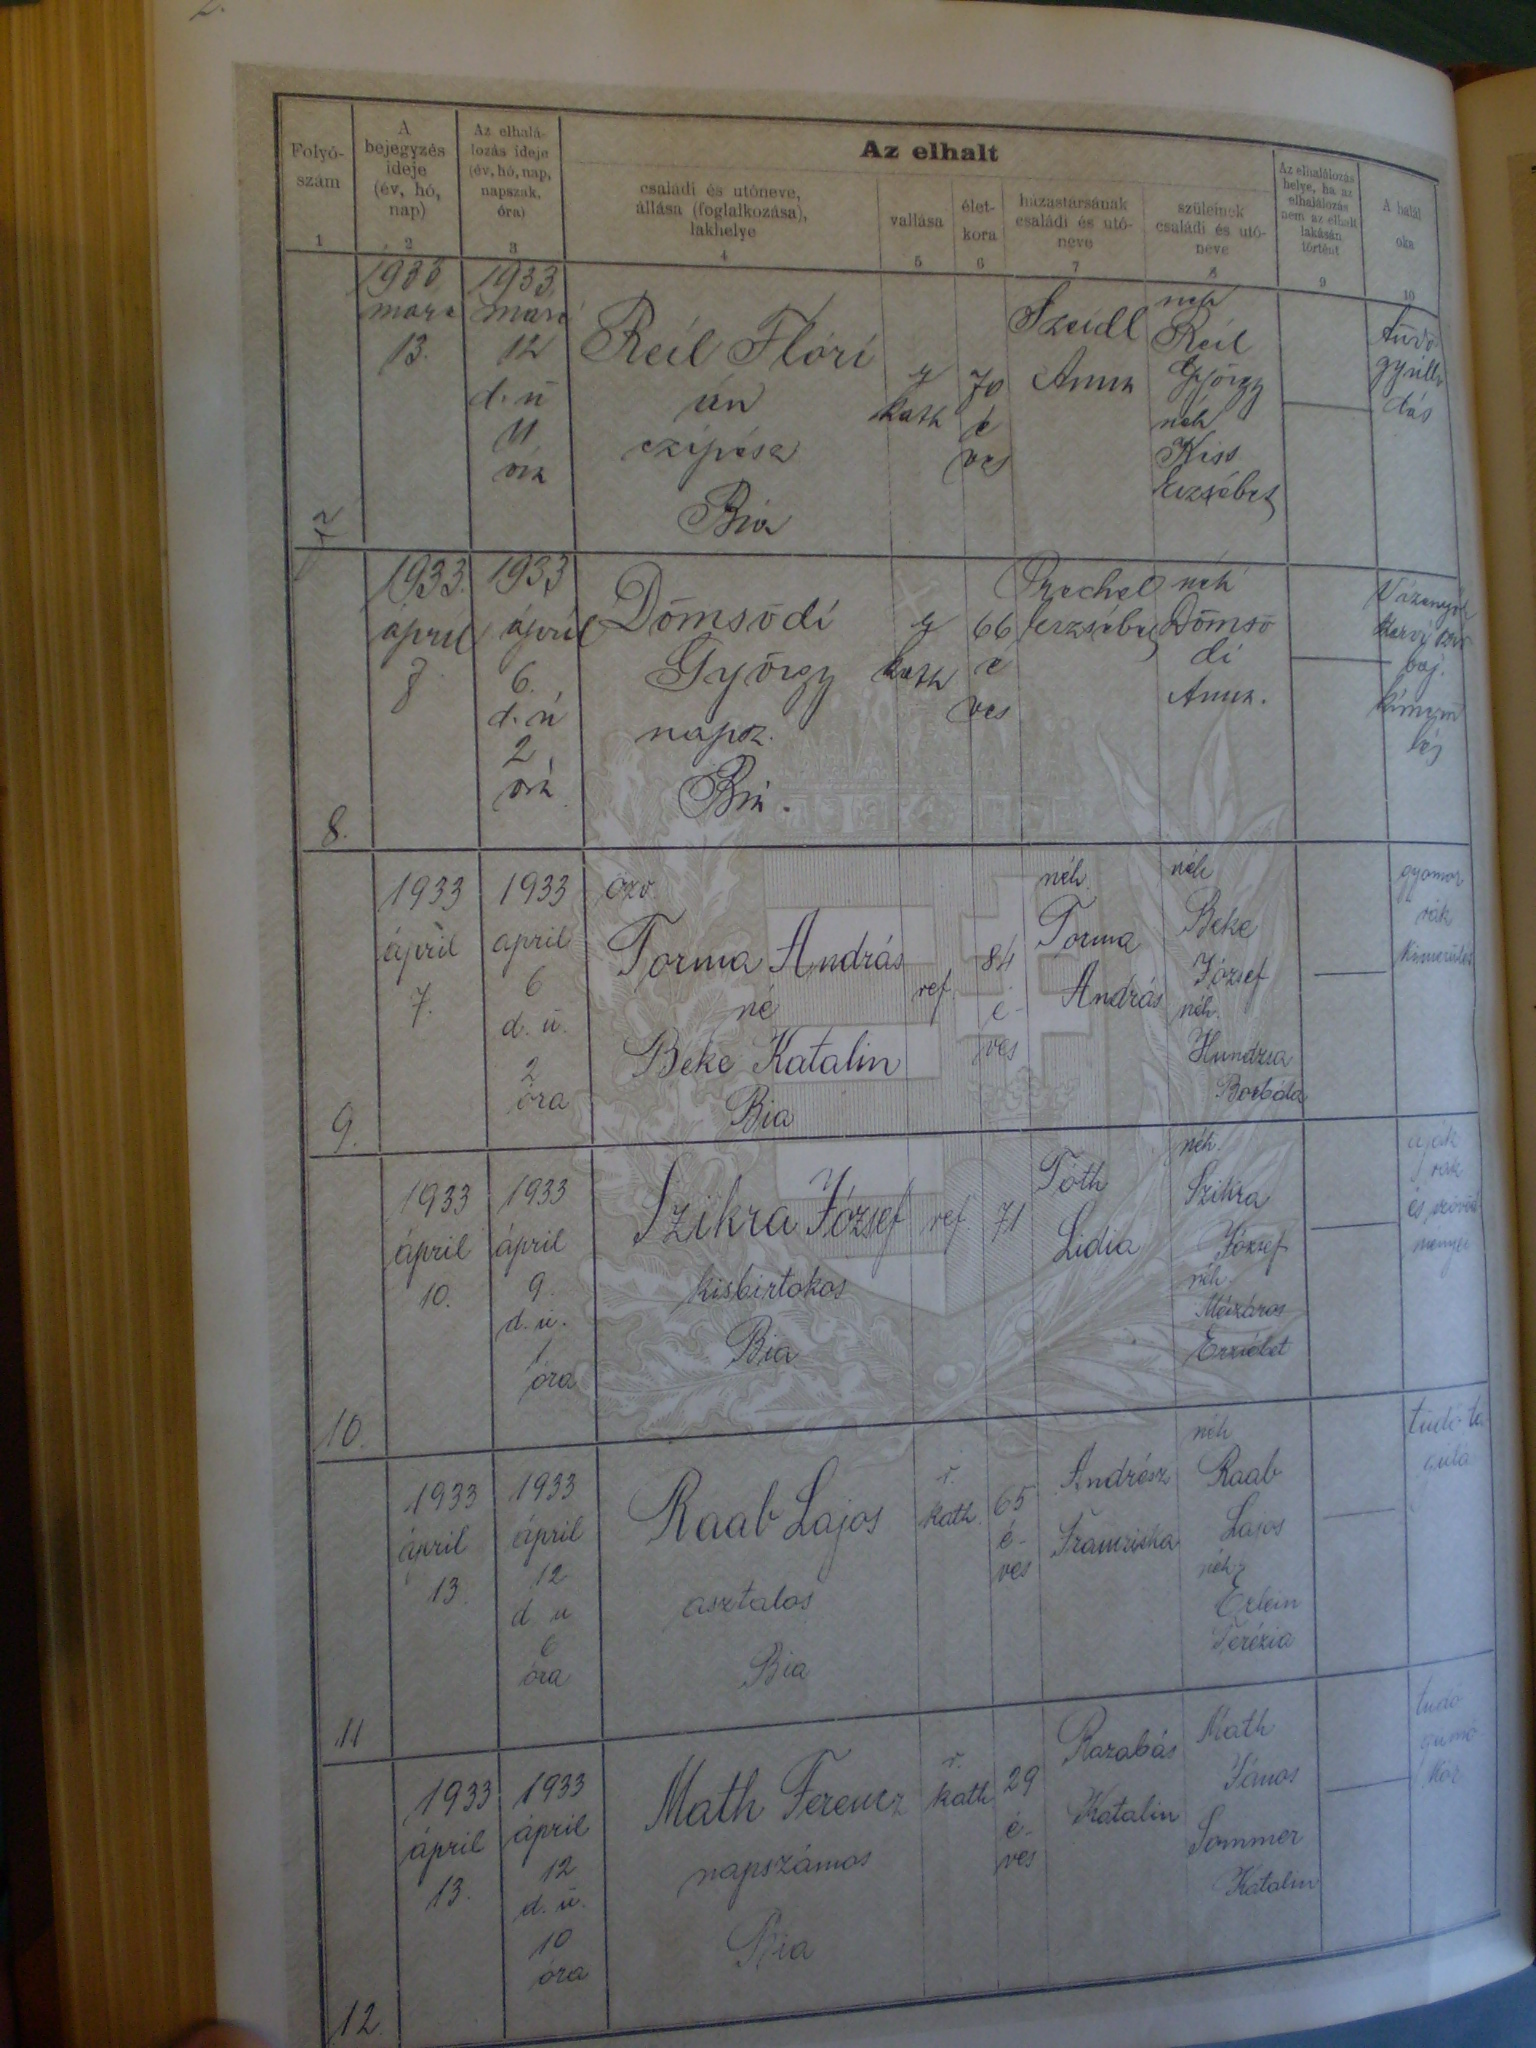 2.
Az elhalt
Folyó-
szám
A
bejegyzés
ideje
(év, hó,
nap)
Az elhalá-
lozás ideje
(év, hó, nap,
napszak,
óra)
családi és utóneve,
állása (foglalkozása),
lakhelye
vallása
élet-
kora
házastársának
családi és utó-
neve
szüleinek
családi és utó-
neve
Az elhalálozás
helye, ha az
elhalálozás
nem az elhalt
lakásán
történt
A halál
oka
1 2 3 4 5 6 7 8 9 10
7
1933
marc
13.
1933
marc
12
d. u
11
óra
Reil Flóri
án
czipész
Bia
r
kath
70
é
ves
Szeidl
Anna
neh
Reil
György
neh
Kiss
Erzsébet
tüdő
gyulla
dás
8.
1933.
ápril
7
1933
ápril
6.
d. u
2
óra
Dömsödi
György
napsz.
Bia.
r
kath
66
é
ves
Erzsébet
néh
Dömsö
di
Anna.
9.
1933
ápril
7.
1933
april
6
d. u.
2
óra
özv.
Torma András
né
Beke Katalin
Bia
ref.
84
é-
ves
néh.
Torma
András
néh
Beke
József
néh.
Borbála
gyomor
rák
kimerülés
10.
1933
ápril
10.
1933
ápril
9.
d. u.
1
óra
Szikra József
kisbirtokos
Bia
ref.
71
Tóth
Lidia
néh.
Szikra
József
néh.
Mészáros
Erzsébet
ajak
rák
és szövőd
ményei
11
1933
ápril
13.
1933
ápril
12
d u
6
óra
Raab Lajos
asztalos
Bia
r.
kath.
65
é-
ves
Andrész
Franziska
néh
Raab
Lajos
néh.
Erlein
Terézia
tüdő tá
gulat
12.
1933
ápril
13.
1933
ápril
12
d. u.
10
óra
Math Ferencz
napszámos
Bia
r.
kath
29
é-
ves
Katalin
Math
János
Sommer
Katalin
tüdő
gümő
kór